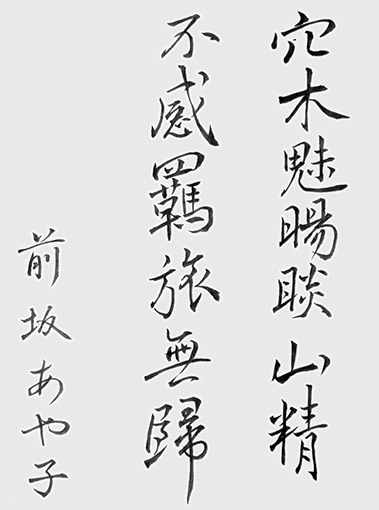 穴木魅暘睒山精
不感羈旅無歸
前坂あや子